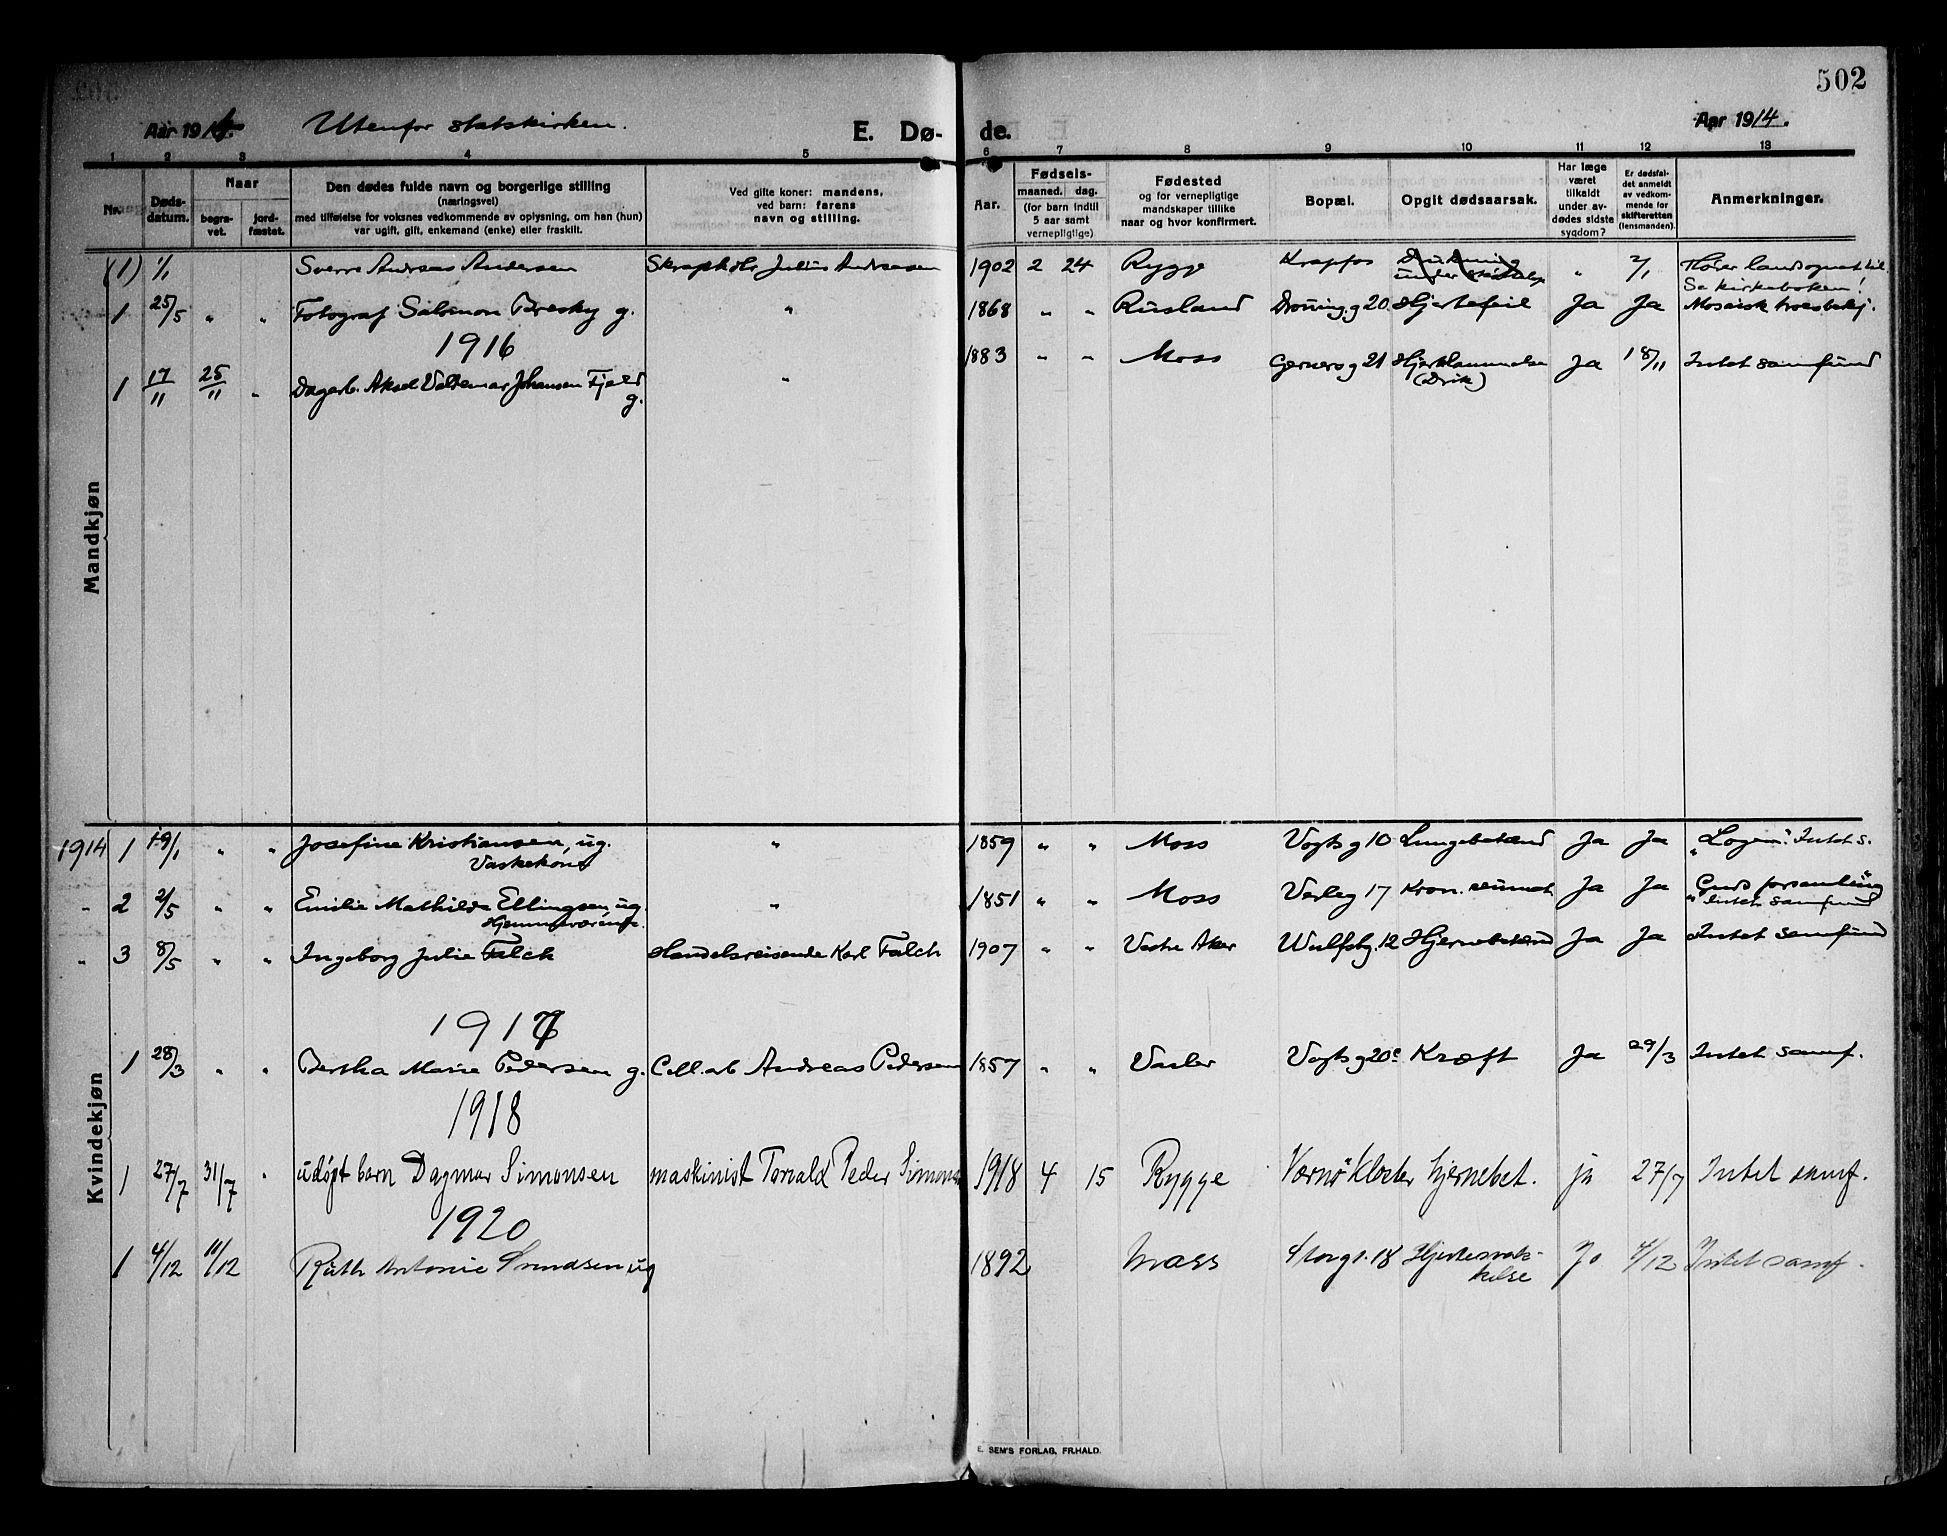 502
Aar 1914. Utenfor statskirken. E. Dø- de. Aar 1914.
1 2 3 4 5 6 7 8 9 10 11 12 13
Nr. Døds-datum. Naar begra-vet. jord-fæstet. Den dødes fulde navn og borgerlige stilling (næringsvei) med tilføielse for voksnes vedkommende av oplysning, om han (hun) var ugift, gift, enkemand (enke) eller fraskilt. Ved gifte koner: mandens, ved barn: farens navn og stilling. Aar. Fødsels- maaned. dag. (for barn indtil 5 aar samt vernepligtige) Fødested og for vernepligtige mandskaper tillike naar og hvor konfirmert. Bopæl. Opgit dødsaarsak. Har læge været tilkaldt under av-dødes sidste sygdom? Er dødsfal-det anmeldt av vedkom-mende for skifteretten (lensmanden). Anmerkninger.
Mandkjøn
(1) 1/1 Sverre Andreas Andersen Julius Andreasen 1902 2 24 Rygge Krapfos Drukning under " 2/1 landsognet til. Se kirkeboken!
1 25/5 " " Fotograf Salomon Bresky g. " 1868 " " Rusland Dronning.g 20 Hjertefeil Ja Ja Mosaisk troesbekj.
1916
1 17/11 25/11 " Dagarb. Aksel Valdemar Johansen Fjeld g. " 1883 " " Moss Gerners g 21 Hjertelammelse (Drik) Ja 18/11 Intet samfund
Kvindekjøn
1914 1 19/1 " " Josefine Kristiansen, ug. Vaskekone " 1859 " " Moss Vogts g 10 Lungebetænd Ja Ja "Logen". Intet s.
" 2 2/5 " " Emilie Mathilde Ellingsen ug. " 1851 " " Moss Varleg 17 Kron. reumat. Ja Ja "Guds forsamling" Intet samfund
" 3 8/5 " " Ingeborg Julie Falck Handelsreisende Karl Falch 1907 " " Vestre Aker Wulfsbg. 12 Hjernebetænd Ja Ja Intet samfund
1917
1 28/3 " " Bertha Marie Pedersen g. Cell.arb Andreas Pedersen 1857 " " Vaaler Vogts g 20 Kræft Ja 29/3 Intet samf.
1918
1 27/7 31/7 " udøpt barn Dagmar Simonsen maskinist Torvald Peder Simonsen 1918 4 15 Rygge Værnø Kloster hjernebet. ja 27/7 Intet samf.
1920
1 4/12 11/12 Ruth Antonie Svendsen ug 1892 Moss Storgt. 18 Hjertesvækkelse Ja 4/12 Intet samf.
E. SEM'S FORLAG, FR.HALD.